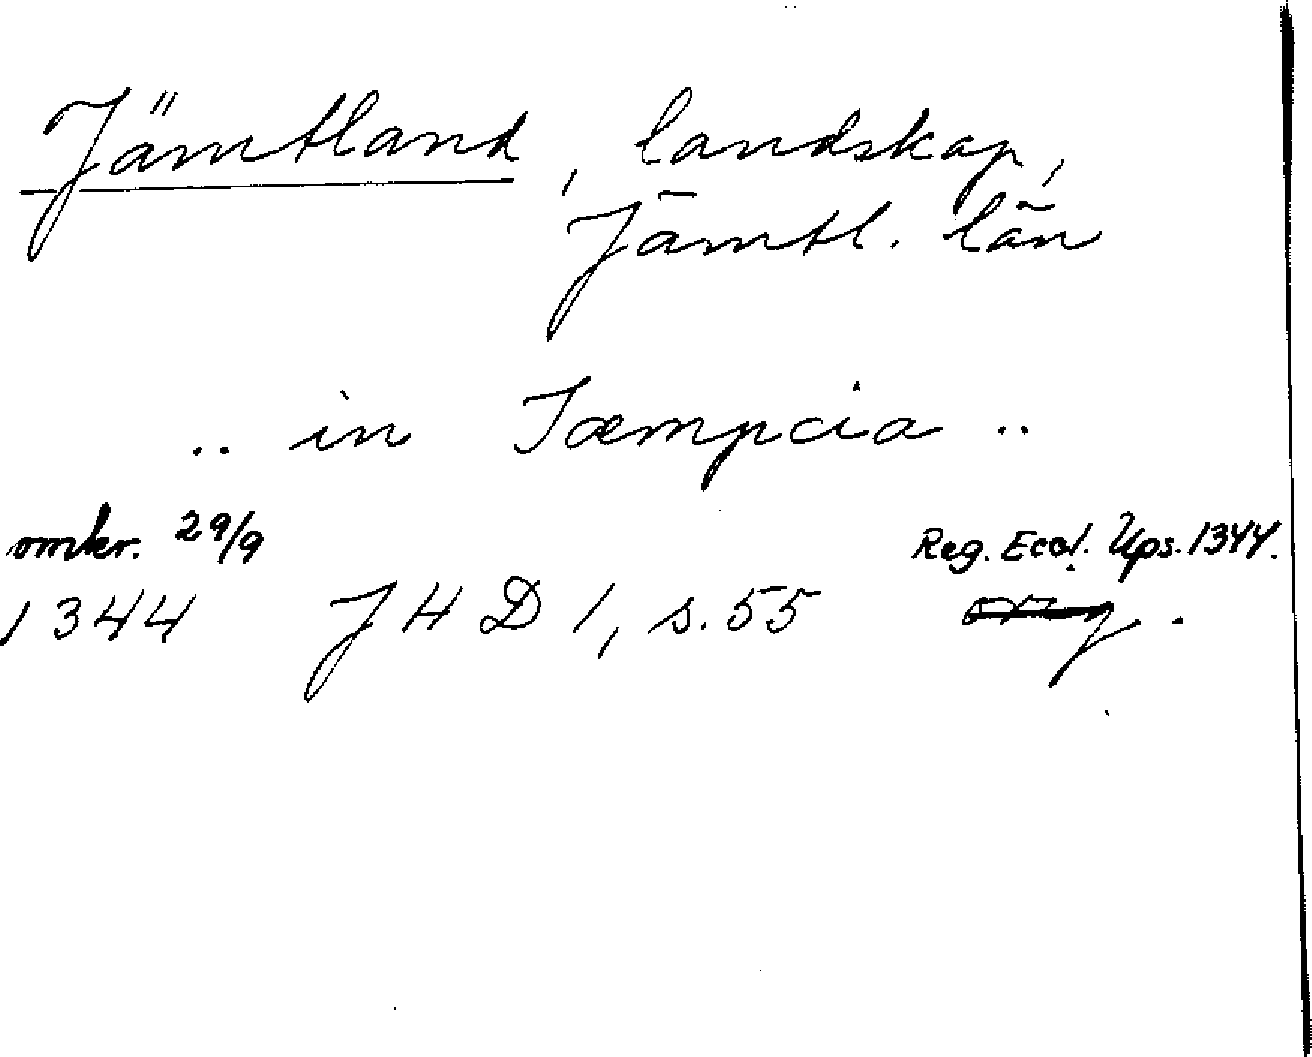 Jämtland, landskap,
Jämtl. län
.. in Jæmpcia ..
omkr. 29/9
Reg. Eccl. Ups. 1344.
1344 JHD 1, s. 55 orig.